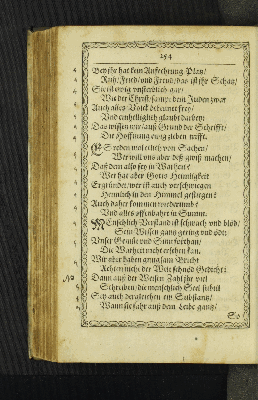 254
Bey jhr hat kein Anfechtung Plan/
Ruh/ Fried/ und Freud/ das ist jhr Schatz/
Sie ist ewig unsterblich gar/
Wie der Christ/ sampt dem Juden zwar
Auch alles Volck bekennet frey/
Und einhelliglich glaubt darbey:
Das wissen wir/ auß Grund der Schrifft/
Die Hoffnung ewig Leben trifft.
ES reden wol etlich von Sachen/
Wer will uns aber deß gwiß machen/
Daß dem also sey in Warheit?
Wer hat aber Gottes Heimligkeit
Ergründet/ wer ist auch verschwiegen
Heimlich in den Himmel gestiegen?
Auch daher kommen wiederumb?
Und alles offenbahrt in Summ.
MEnschlich Verstand ist schwach und blöd/
Sein Wissen gantz gering und öd:
Unser Gemüt und Sinn forthan/
Die Warheit nicht ersehen kan.
Wir aber haben gnugsam Bricht
Achten nicht der Welt schnöd Gedicht:
Dann auß der Weisen Zahl sie viel
Schreiben/ die menschlich Seel subtil
Sey auch dergleichen ein Substantz/
Wann sie fahr auß dem Leibe gantz/
Sie